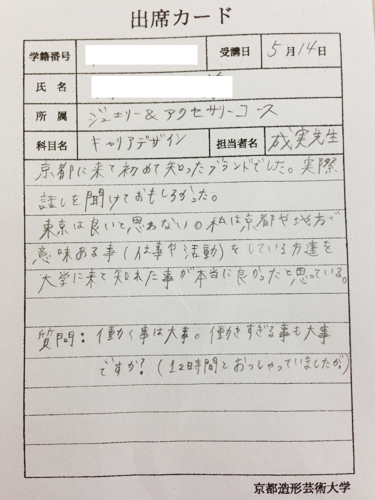 出席カード
学籍番号 受講日 5月14日
氏名
所属 ジュエリー&アクセサリーコース
科目名 キャリアデザイン 担当者名 成実先生
京都に来て初めて知ったブランドでした。実際
話しを聞けておもしろかった。
東京は良いと思わない。私は京都や地方で
意味ある事(仕事や活動)をしている方達を
大学に来て知れた事が本当に良かったと思っている。
質問: 働く事は大事。働きすぎる事も大事
ですか?(12時間とおっしゃっていましたが)
京都造形芸術大学